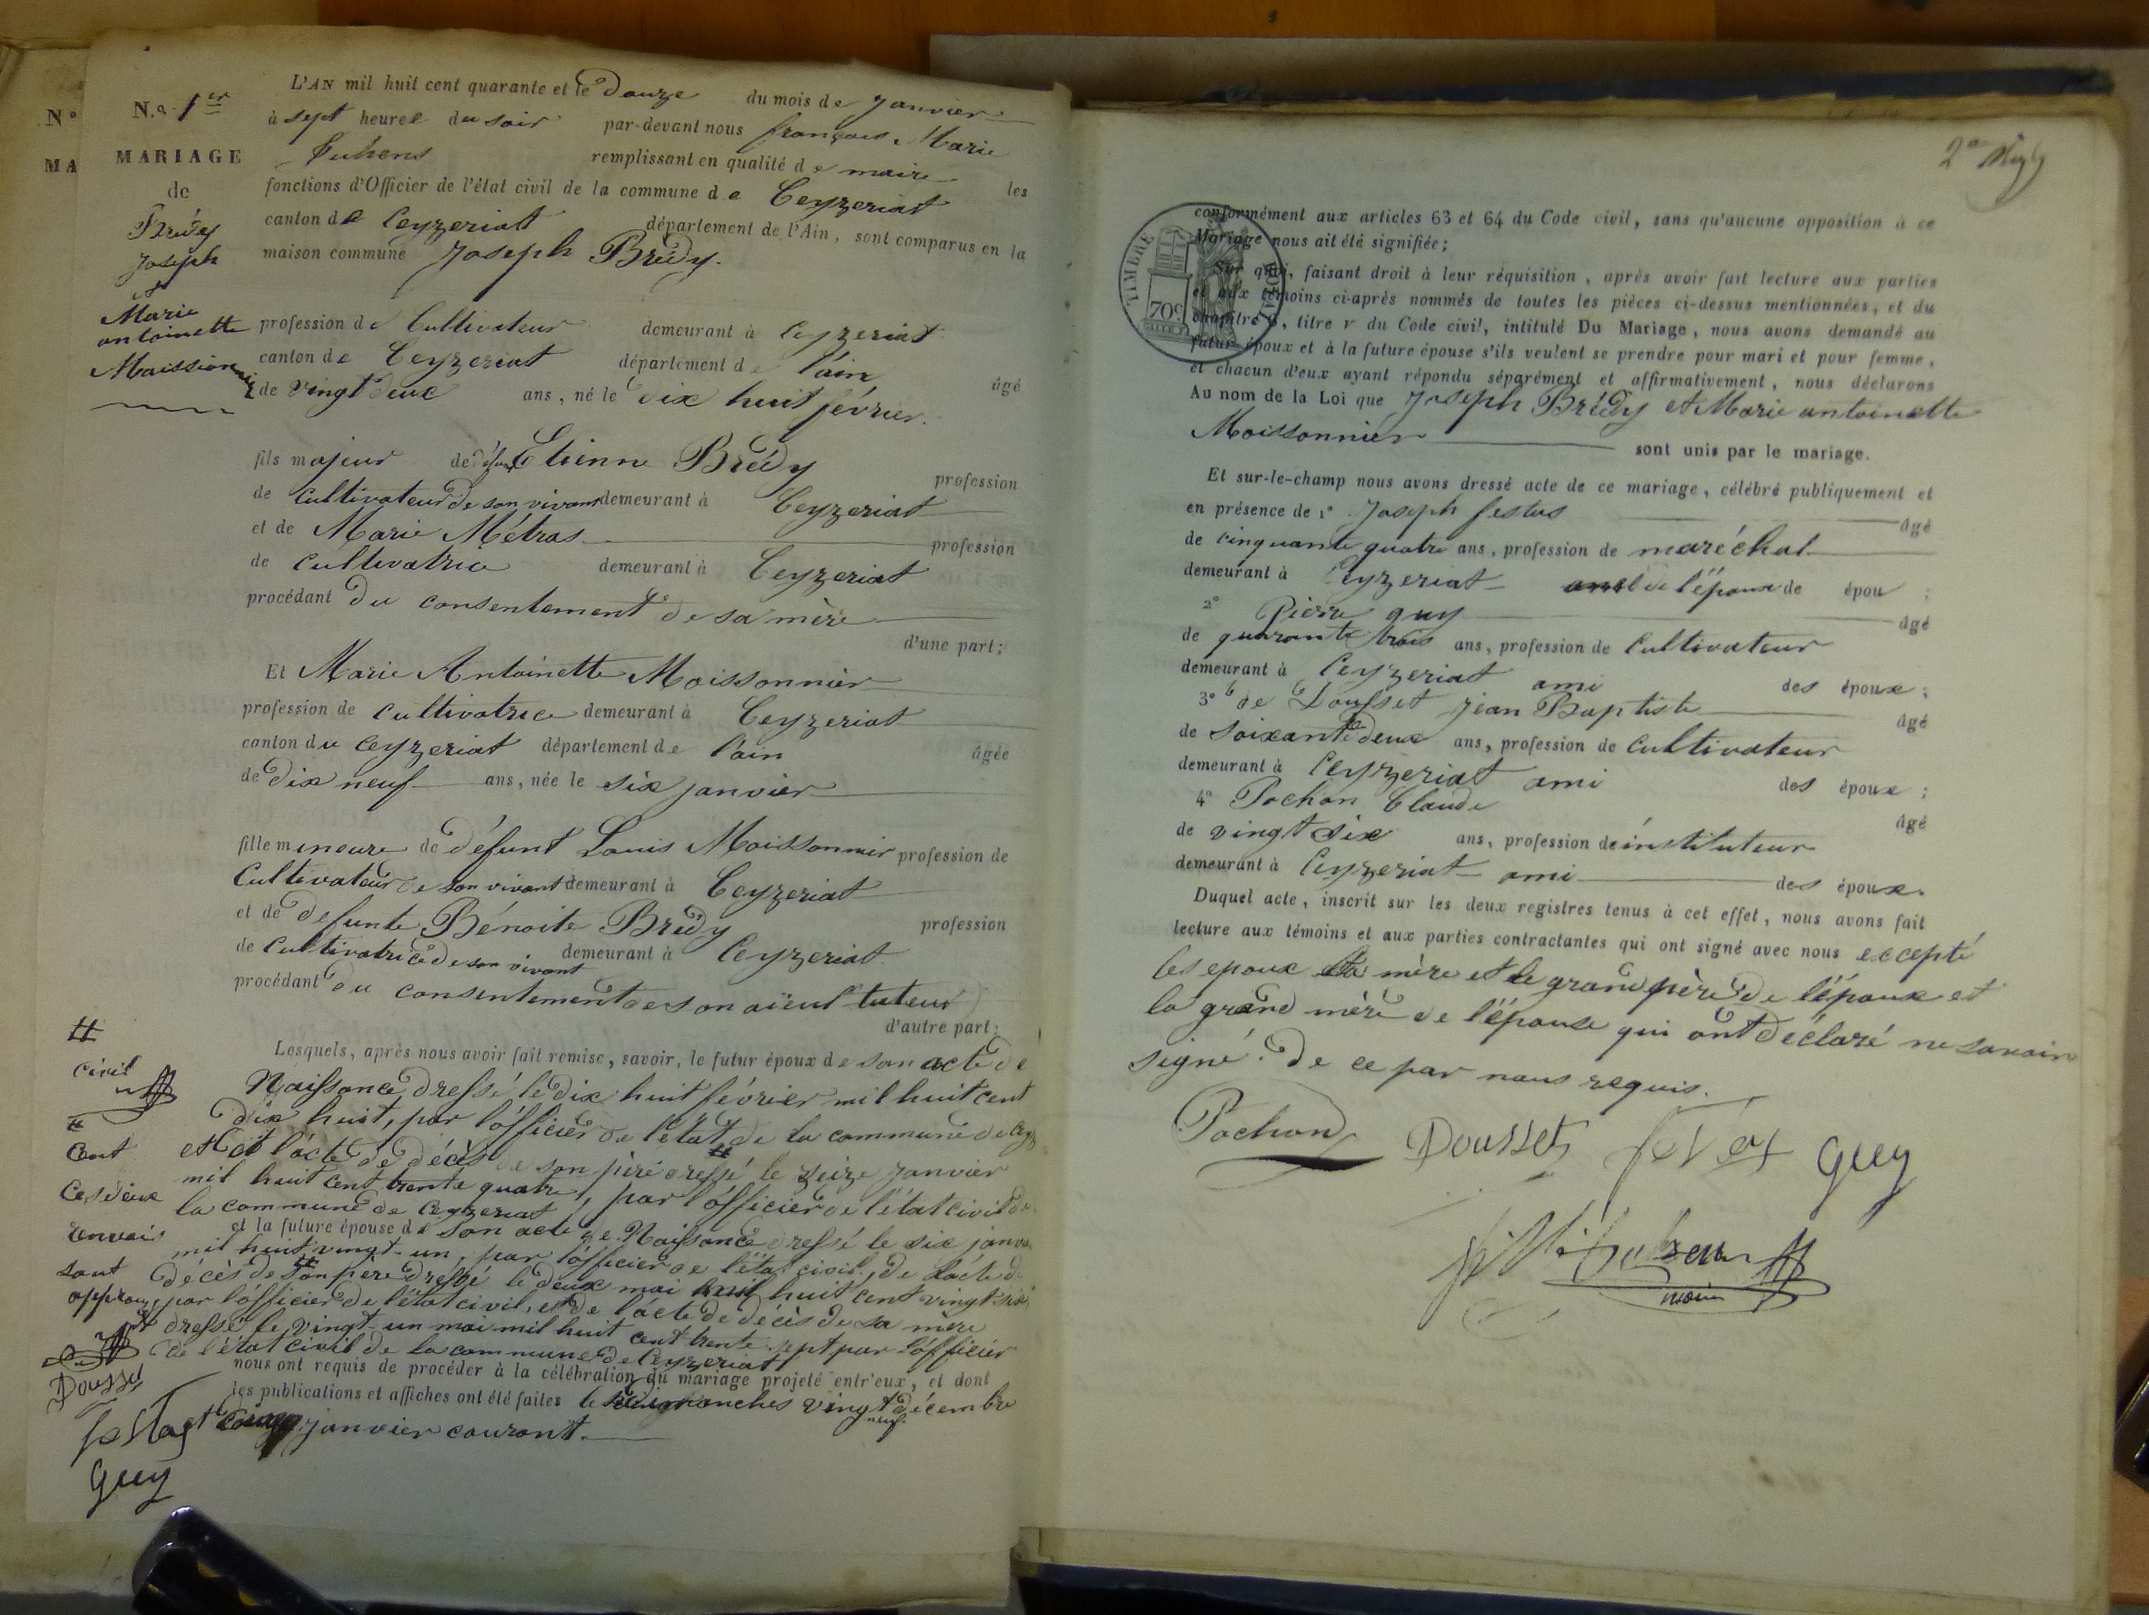 N°
MA
N.o 1er
MARIAGE
de
Brédy
Joseph
et
Marie
antoinette
Maissonnier
L'AN mil huit cent quarante et le douze du mois de janvier
à sept heures du soir par-devant nous françois Marie
remplissant en qualité de maire les
fonctions d'Officier de l'état civil de la commune de Ceyzeriat
canton de Ceyzeriat département de l'Ain, sont comparus en la
maison commune Joseph Brédy.
profession de Cultivateur demeurant à Ceyzeriat
canton de Ceyzeriat département de l'ain âgé
de vingt deux ans, né le dix huit février.
fils majeur de défunt Etienne Brédy profession
de cultivateur de son vivant demeurant à Ceyzeriat
et de Marie Métras profession
de Cultivatrice demeurant à Ceyzeriat
procédant du consentement de sa mère
d'une part;
Et Marie Antoinette Moissonnier
profession de Cultivatrice demeurant à Ceyzeriat
canton du Ceyzeriat département de l'ain âgée
de dix neuf ans, née le six janvier
fille mineure de défunt Louis Moissonnier profession de
Cultivateur de son vivant demeurant à Ceyzeriat
et de defunte Bénoite Brédy profession
de Cultivatrice de son vivant demeurant à Ceyzeriat
procédant du consentement de son aïeul tuteur
d'autre part;
Lesquels, après nous avoir fait remise, savoir, le futur époux de son acte de
Naissance dressé le dix huit février mil huit cent
dix huit, par l'officier de l'état de la commune de Cey
et l'acte de décès de son père dressé le seize janvier
mil huit cent trente quatre, par l'officier de l'état civil de
la commune de Ceyzeriat
et la future épouse de son acte de Naissance dressé le six janvier
mil huit vingt-un, par l'officier de l'état civil, de l'acte de
décès de son père dressé le deux mai huit cent vingt six
par l'officier de l'état civil, et de l'acte de décès de sa mère
dressé le vingt-un mai mil huit cent trente sept par l'officier
de l'état civil de la commune de Ceyzeriat
nous ont requis de procéder à la célébration du mariage projeté entr'eux, et dont
les publications et affiches ont été faites les dimanches vingt neuf décembre
janvier courant.
civil
cent
Ces deux
renvois
sont
Dousset
festas
guy
2e
TIMBRE ROYAL
70c
conformément aux articles 63 et 64 du Code civil, sans qu'aucune opposition à ce
Mariage nous ait été signifiée;
Sur quoi, faisant droit à leur réquisition, après avoir fait lecture aux parties
et aux témoins ci-après nommés de toutes les pièces ci-dessus mentionnées, et du
chapitre 6, titre v du Code civil, intitulé Du Mariage, nous avons demandé au
futur époux et à la future épouse s'ils veulent se prendre pour mari et pour femme,
et chacun d'eux ayant répondu séparément et affirmativement, nous déclarons
Au nom de la Loi que Joseph Brédy et Marie antoinette
Moissonnier sont unis par le mariage.
Et sur-le-champ nous avons dressé acte de ce mariage, célébré publiquement et
en présence de 1° Joseph festas âgé
de cinquante quatre ans, profession de maréchal
demeurant à Ceyzeriat ami de l'époux de épou ;
2° Pierre guy âgé
de quarante trois ans, profession de Cultivateur
demeurant à Ceyzeriat ami des époux;
3° de Dousset jean Baptiste âgé
de soixante deux ans, profession de cultivateur
demeurant à Ceyzeriat ami des époux;
4° Pochon Claude âgé
de vingt six ans, profession de instituteur
demeurant à Ceyzeriat ami des époux.
Duquel acte, inscrit sur les deux registres tenus à cet effet, nous avons fait
lecture aux témoins et aux parties contractantes qui ont signé avec nous excepté
les epoux la mère et le grand père de l'époux et
la grand mère de l'épouse qui ont déclaré ne savoir
signé. de ce par nous requis.
Pochon Dousset guy
maire